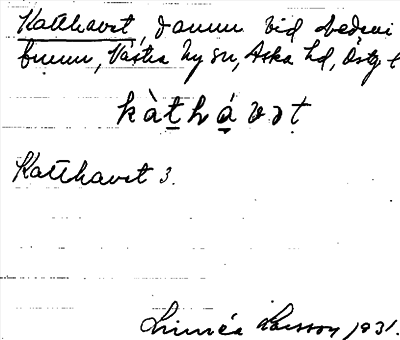 Katthavet, damm vid Medevi
brunn, Västra Ny sn, Aska hd, Östg l
kàt̲há̲vəṭ
Katthavet 3.
Linnéa Larsson 1931.